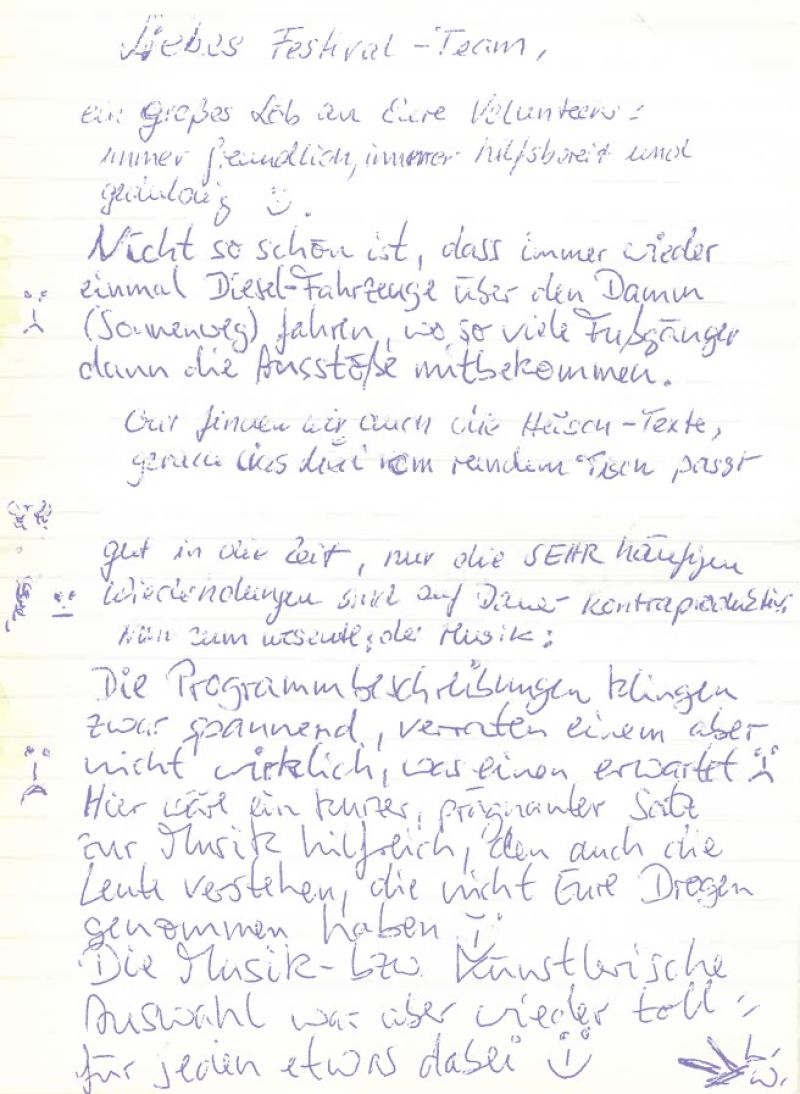 Liebes Festival-Team,
ein großes Lob an Eure Volunteers:
immer freundlich, immer hilfsbereit und
geduldig
Nicht so schön ist, dass immer wieder
einmal Diesel-Fahrzeuge über den Damm
(Sonnenweg) fahren, wo so viele Fußgänger
dann die Ausstöße mitbekommen.
Gut finden wir auch die Heisch-Texte,
gerade das vom Tisch passt
gut in die Zeit, nur die SEHR häufigen
Wiederholungen sind auf Dauer kontraproduktiv
Nun zum wesentl., der Musik:
Die Programmbeschreibungen klingen
zwar spannend, verraten einem aber
nicht wirklich, was einen erwartet
Hier wäre ein kurzer, prägnanter Satz
zur Musik hilfreich, den auch die
Leute verstehen, die nicht Eure Drogen
genommen haben
Die Musik- bzw. Künstlerische
Auswahl war aber wieder toll -
für jeden etwas dabei